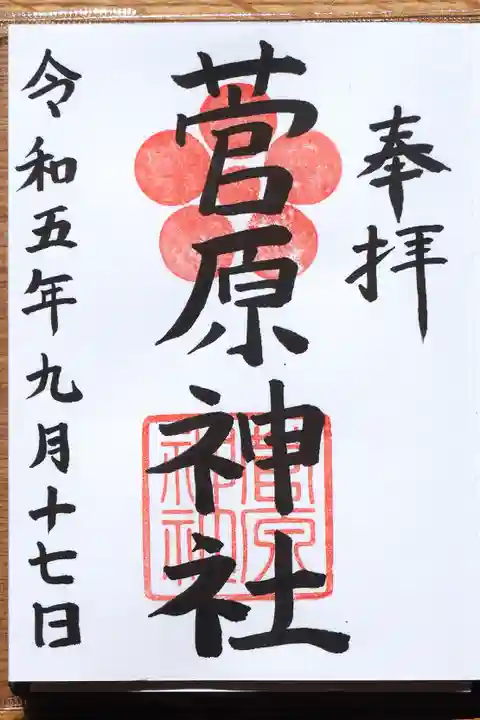 奉拝
菅原神社
菅原
神社
令和五年九月十七日